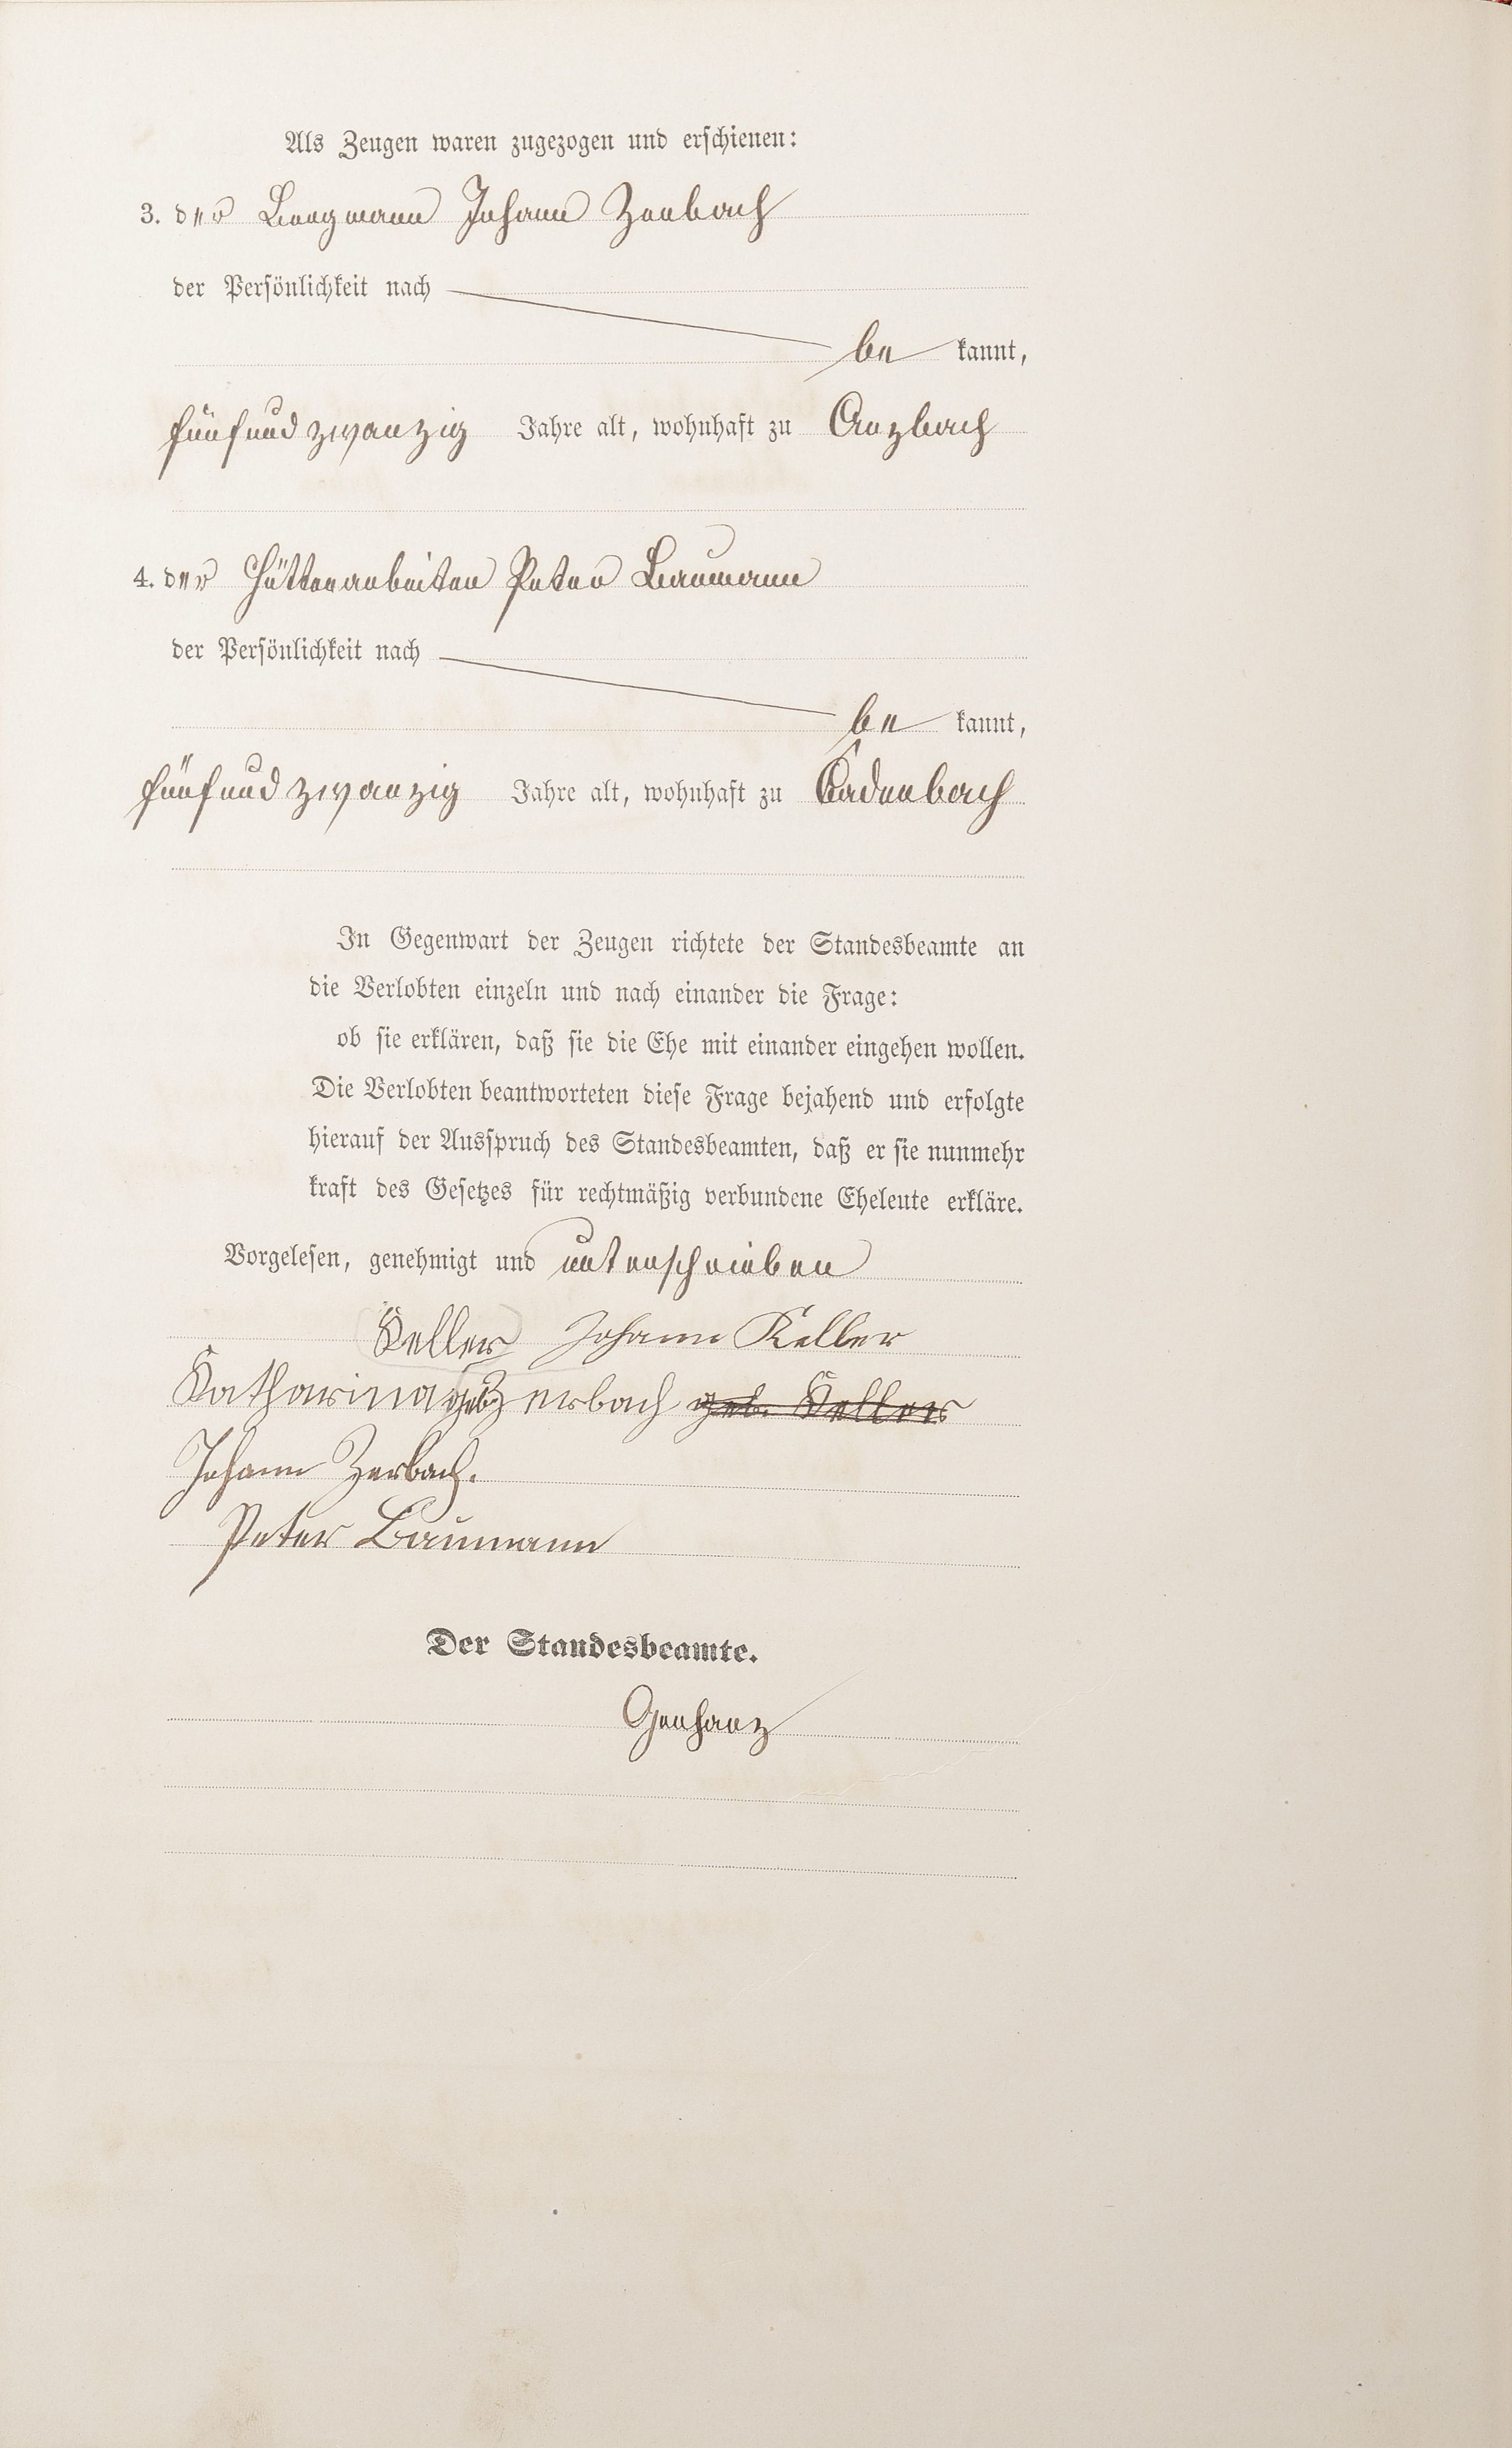 Als Zeugen waren zugezogen und erschienen:
3. der Bergmann Johann Zerbach
der Persönlichkeit nach
be kannt,
fünfund zwanzig Jahre alt, wohnhaft zu Arzbach
4. der Hüttenarbeiter Peter Baumann
der Persönlichkeit nach
be kannt,
fünfund zwanzig Jahre alt, wohnhaft zu Cadenbach
In Gegenwart der Zeugen richtete der Standesbeamte an
die Verlobten einzeln und nach einander die Frage:
ob sie erklären, daß sie die Ehe mit einander eingehen wollen.
Die Verlobten beantworteten diese Frage bejahend und erfolgte
hierauf der Ausspruch des Standesbeamten, daß er sie nunmehr
kraft des Gesetzes für rechtmäßig verbundene Eheleute erkläre.
Vorgelesen, genehmigt und unterschrieben
Keller Johann Keller
Katharina geb Zerbach geb. Keller
Johann Zerbach.
Peter Baumann
Der Standesbeamte.
Gerharz